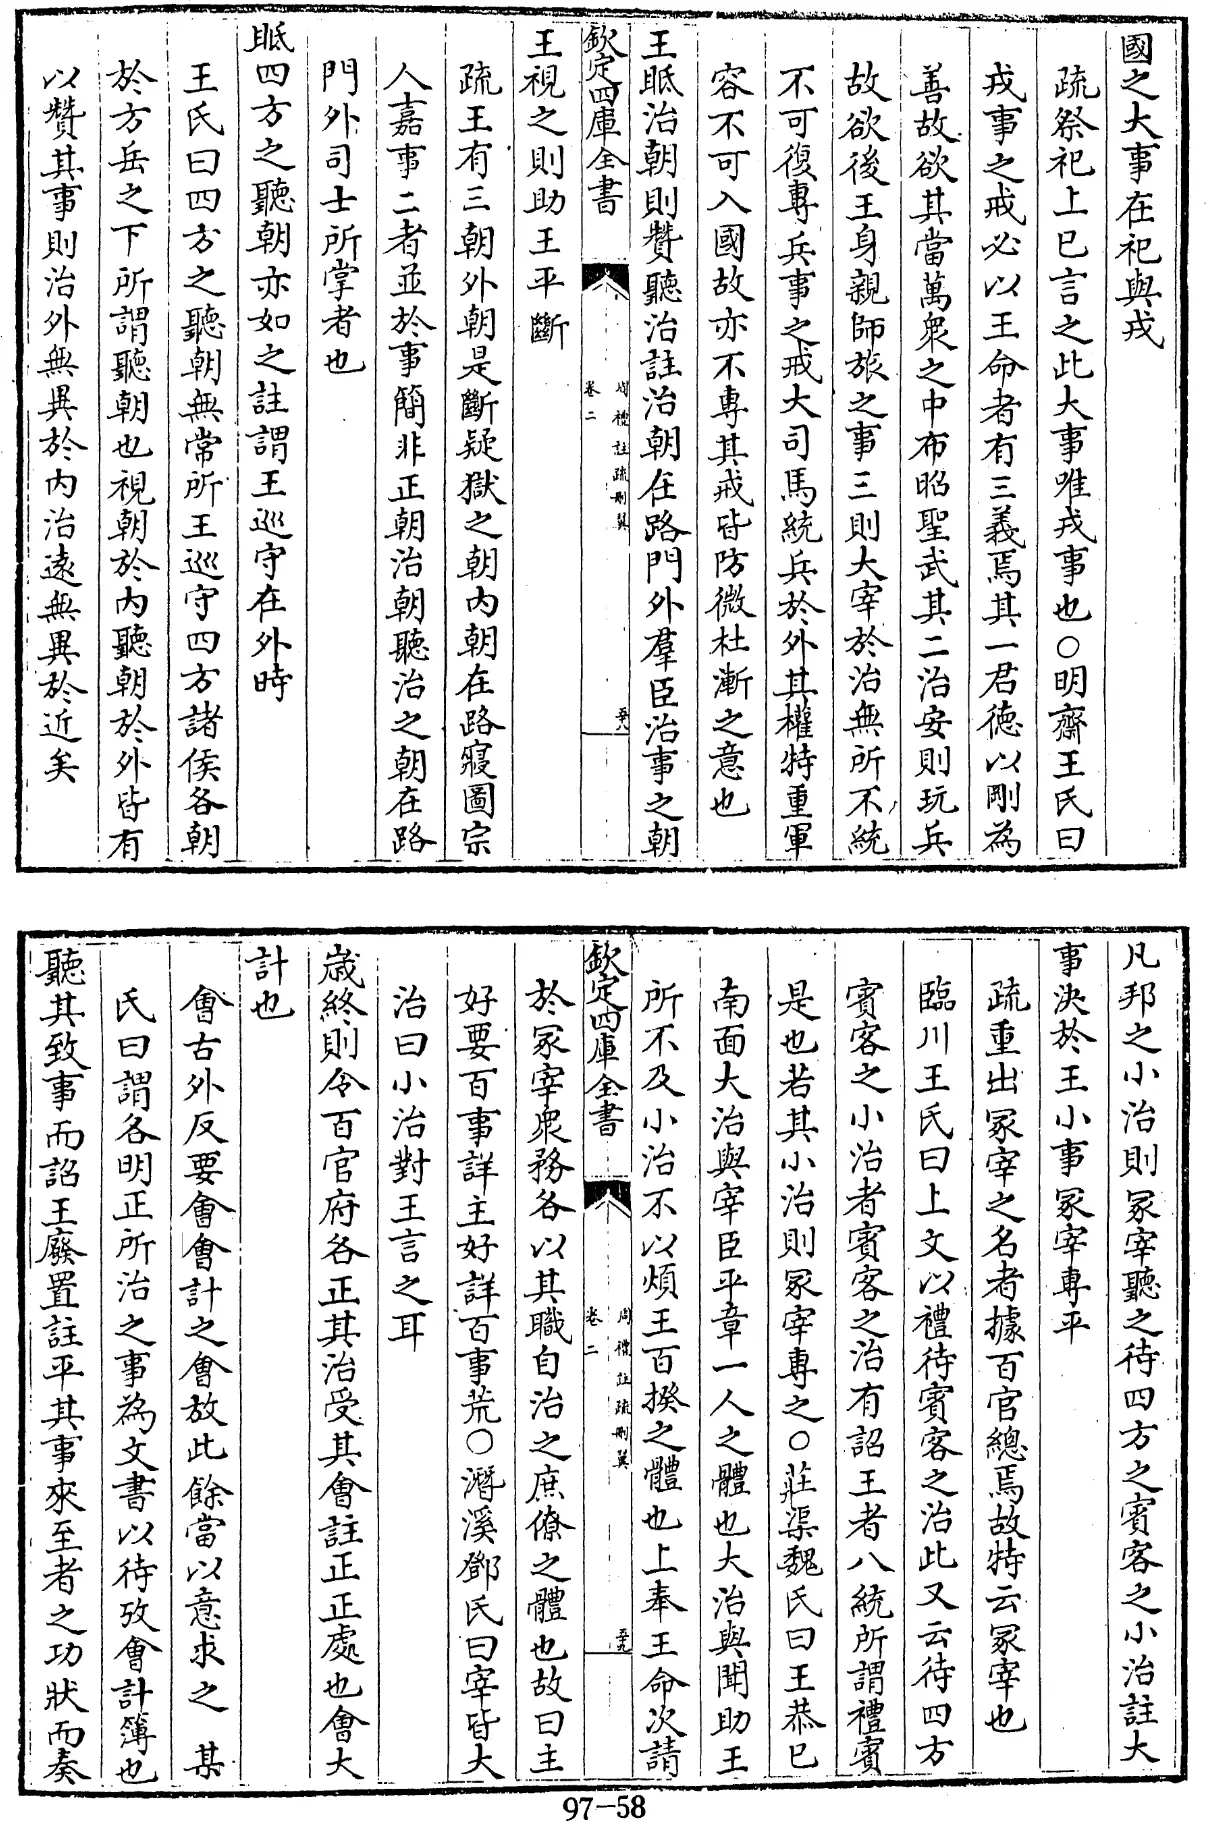 國之大事在祀與戎
疏祭祀上已言之此大事唯戎事也○明齋王氏曰
戎事之戒必以王命者有三義焉其一君德以剛為
善故欲其當萬衆之中布昭聖武其二治安則玩兵
故欲後王身親師旅之事三則大宰於治無所不統
不可復專兵事之戒大司馬統兵於外其權特重軍
容不可入國故亦不專其戒皆防微杜漸之意也
王眡治朝則贊聽治註治朝在路門外羣臣治事之朝
欽定四庫全書
周禮註疏刪翼
卷二
五十八
王視之則助王平斷
疏王有三朝外朝是斷疑獄之朝內朝在路寢圖宗
人嘉事二者並於事簡非正朝治朝聽治之朝在路
門外司士所掌者也
眡四方之聽朝亦如之註謂王巡守在外時
王氏曰四方之聽朝無常所王巡守四方諸侯各朝
於方岳之下所謂聽朝也視朝於內聽朝於外皆有
以贊其事則治外無異於內治遠無異於近矣
凡邦之小治則冢宰聽之待四方之賓客之小治註大
事決於王小事冢宰專平
疏重出冢宰之名者據百官總焉故特云冢宰也
臨川王氏曰上文以禮待賓客之治此又云待四方
賓客之小治者賓客之治有詔王者八統所謂禮賓
是也若其小治則冢宰專之○莊渠魏氏曰王恭已
南面大治與宰臣平章一人之體也大治與聞助王
所不及小治不以煩王百揆之體也上奉王命次請
欽定四庫全書
周禮註疏刪翼
卷二
五十九
於冢宰衆務各以其職自治之庶僚之體也故曰主
好要百事詳主好詳百事荒○潛溪鄧氏曰宰皆大
治曰小治對王言之耳
歲終則令百官府各正其治受其會註正正處也會大
計也
會古外反要會會計之會放此餘當以意求之　某
氏曰謂各明正所治之事為文書以待攷會計簿也
聽其致事而詔王廢置註平其事來至者之功狀而奏
97-58